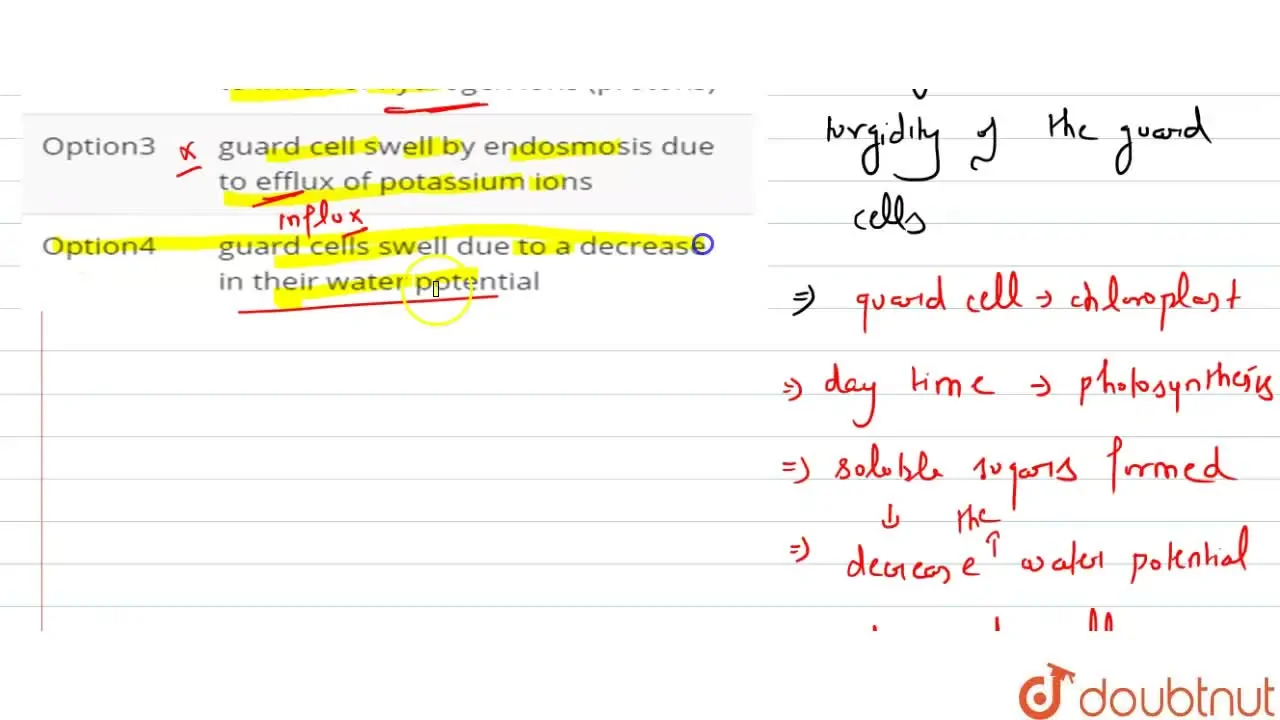 (protons)
Option3 x guard cell swell by endosmosis due
to efflux of potassium ions
influx
Option4 guard cells swell due to a decrease
in their water potential
turgidity of the guard
cells
⇒ guard cell → chloroplast
⇒ day time → photosynthesis
⇒ soluble sugars formed
↓ the
⇒ decrease ↑ water potential
doubtnut